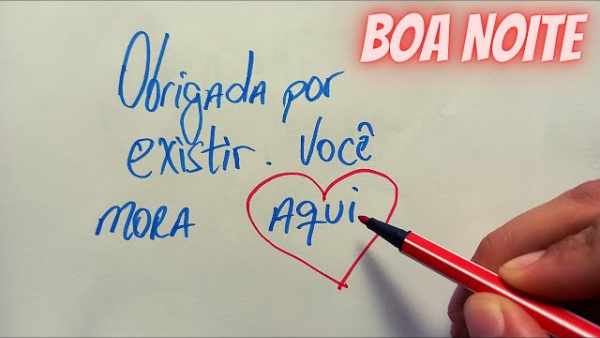 BOA NOITE
Obrigada por
existir. Você
MORA AQUI